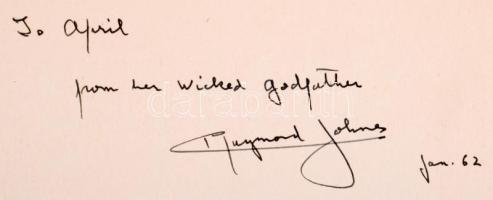 To April
from her wicked godfather
Raymond Johnes
Jan. 62